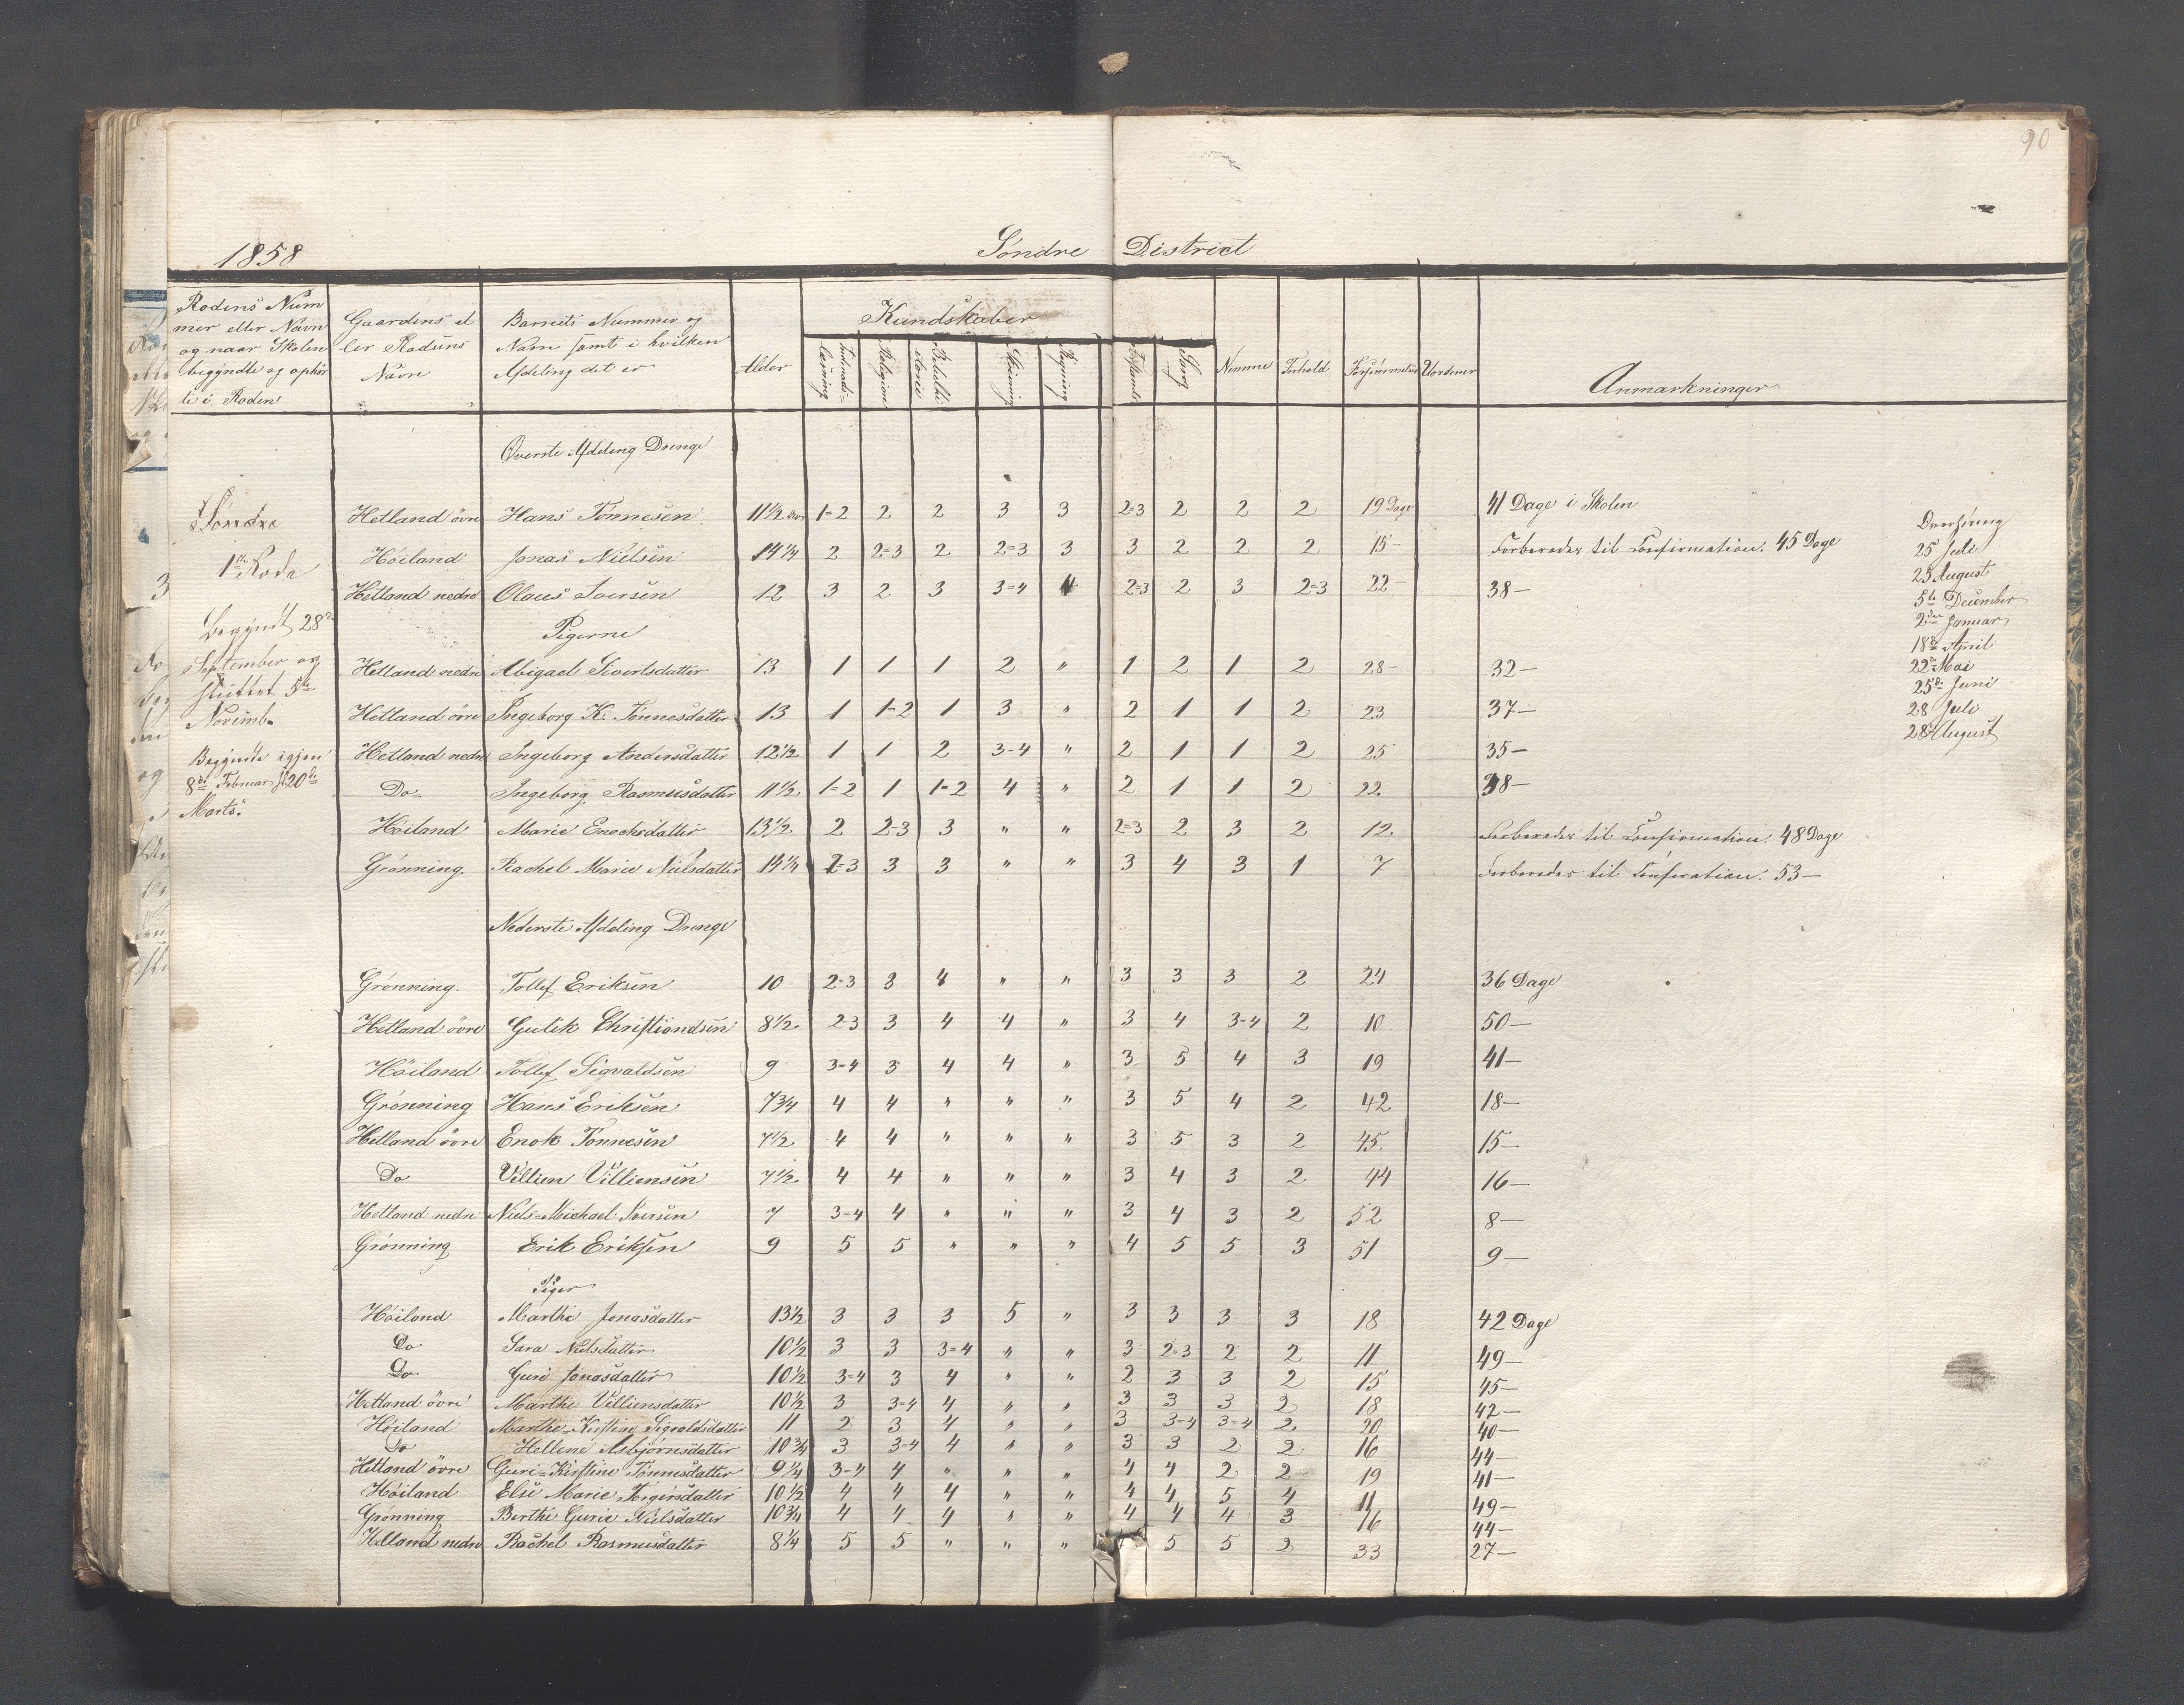 90
1858 Söndre District
Rodens Num
mer eller Navn
og naar Skolen
begyndte og ophör
te i Roden
Gaardens el
ler Stadens
Navn
Barnets Nummer og
Navn samt i hvilken
Afdeling det er
Alder
Kundskaber
Indenads=
læsning
Religion
Bibelhi
storie
Skrivning
Regning
Sang
Nemme
Forhold
Forsömmelser
Anmærkninger
Överste Afdeling Drenge
Söndre
1ste Rode
Begyndt 28de
September og
sluttet 5te
Novemb.
Begyndte igjen
8de Februar sl 20de
Marts.
Hetland övre Hans Tönnesen 11 1/2 Aar 1=2 2 2 3 3 2=3 2 2 2 19 Dage 41 Dage i Skolen
Höiland Jonas Nielsen 14 1/4 2 2=3 2 2=3 3 3 2 2 2 15 – Forberedes til Confirmation. 45 Dage
Hetland nedre Olaus Iversen 12 3 2 3 3=4 4 2=3 2 3 2=3 22 – 38 –
Pigerne
Hetland nedre Abigael Sivertsdatter 13 1 1 1 2 " 1 2 1 2 28 – 32 –
Hetland övre Ingeborg K. Tönnesdatter 13 1 1=2 1 3 " 2 1 1 2 23 37 –
Hetland nedre Ingeborg Andersdatter 12 1/2 1 1 2 3-4 " 2 1 1 2 25 35 –
Do Ingeborg Rasmusdatter 11 1/2 1=2 1 1=2 4 " 2 1 1 2 22 38 –
Höiland Marie Enochsdatter 13 1/2 2 2=3 3 " " 2=3 2 3 2 12 Forberedes til Confirmation. 48 Dage
Grönning. Rachel Marie Nielsdatter 14 1/4 2=3 3 3 " " 3 4 3 1 7 Forberedes til 53 –
25 Juli
25 August
5te December
2den Januar
18de April
22de Mai
25de Juni
28 Juli
28 August
Nederste Afdeling Drenge
Grönning. Tollef Eriksen 10 2=3 3 4 " " 3 3 3 2 24 36 Dage
Hetland övre Gulik Christiandsen 8 1/2 2=3 3 4 4 " 3 4 3-4 2 10 50 –
Höiland Tollef Sigvaldsen 9 3=4 3 4 4 " 3 5 4 3 19 41 –
Grönning Hans Eriksen 7 3/4 4 4 " " " 3 5 4 2 42 18 –
Hetland övre Enok Tönnesen 7 1/2 4 4 " " " 3 5 3 2 45 15 –
Do Villien Villiensen 7 1/2 4 4 " " " 3 4 3 2 44 16 –
Hetland nedre Niels=Michael Iversen 7 3=4 4 " " " 3 4 3 2 52 8 –
Grönning Erik Eriksen 9 5 5 " " " 4 5 5 3 51 9 –
Piger
Höiland Marthe Jonasdatter 13 1/2 3 3 3 5 " 3 3 3 3 18 42 Dage
Do Sara Nielsdatter 10 1/2 3 3 3=4 " " 3 2=3 2 2 11 49 –
Do Guri Jonasdatter 10 1/2 3=4 3 4 " " 2 3 3 2 15 45 –
Hetland övre Marthe Villiensdatter 10 1/2 3 3=4 4 " " 3 3 3 2 18 42 –
Höiland Marthe=Kirstine Sigvaldsdatter 11 2 3 4 " " 3 3=4 3=4 2 20 40 –
Do Hellene Asbjörnsdatter 10 3/4 3 3-4 4 " " 3 3 2 2 16 44 –
Hetland övre Guri=Kirstine Tönnesdatter 9 1/4 3=4 4 " " " 4 4 2 2 19 41 –
Höiland Else Marie Torgersdatter 10 1/2 4 4 4 " " 4 4 5 4 11 49 –
Grönning Berthe Gurie Nielsdatter 10 3/4 4 4 4 " " 4 4 4 3 16 44 –
Hetland nedre Rachel Rasmusdatter 8 1/4 5 5 " " " 5 5 2 33 27 –